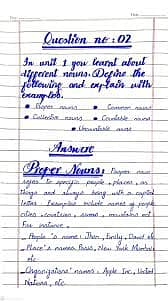 Question no: 02
In unit 1 you learned about
different nouns. Define the
following and explain with
examples.
• Proper nouns • Common nouns
• Collective nouns • Countable nouns
• Uncountable nouns
Answer
Proper Nouns: Proper nouns
refer to specific people, places, or
things and always being with a capital
letter. Examples include names of people
cities, countries,
For instance,
People's name: Emily, David etc
Place's names: Paris, New York, Mumbai
etc
Organizations' names: Apple Inc, United
Nations, etc